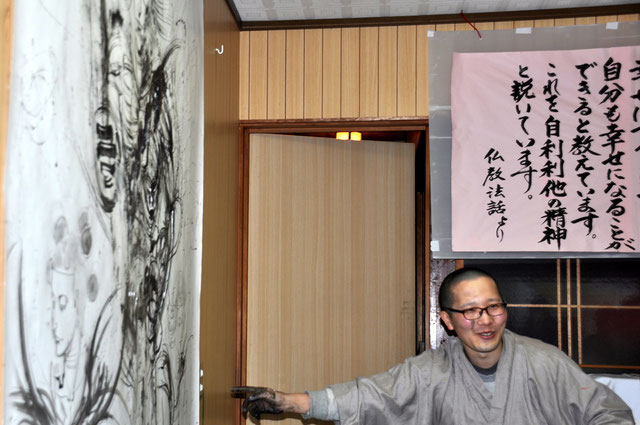 自分も幸せになることが
できると教えています。
これを自利利他の精神
と説いています。
仏教法話より